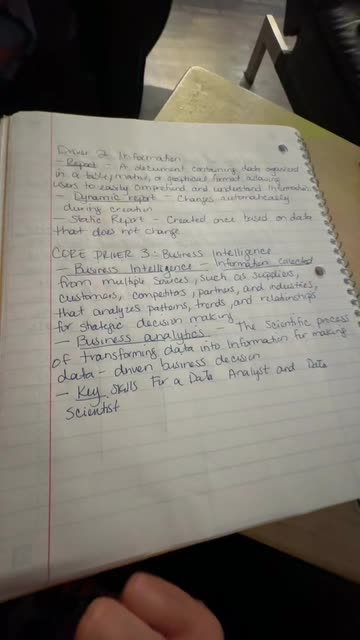 Driver 2: Information
- Report - A document containing data organized
in a table, matrix, or graphical format allowing
users to easily comprehend and understand information
- Dynamic report - Changes automatically
during creation
- Static Report - Created once based on data
that does not change
CORE DRIVER 3: Business Intelligence
- Business Intelligence - Information collected
from multiple sources, such as suppliers,
customers, competitors, partners, and industries,
that analyzes patterns, trends, and relationships
for strategic decision making
- Business analytics - The scientific process
of transforming data into information for making
data-driven business decision
- Key skills For a Data Analyst and Data
Scientist